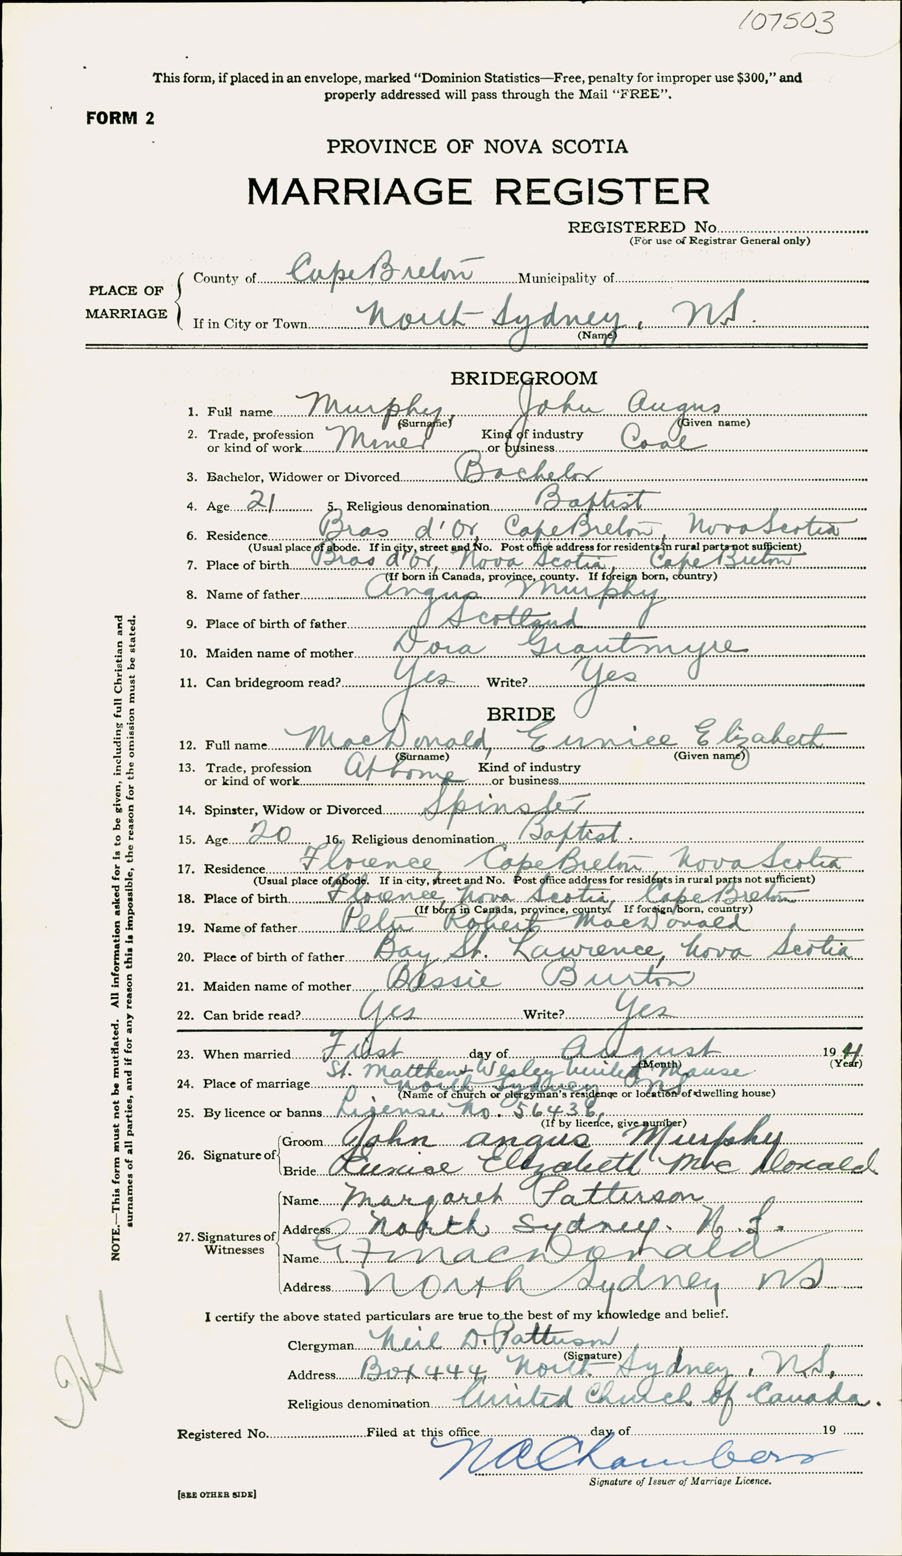 107503
This form, if placed in an envelope, marked "Dominion Statistics—Free, penalty for improper use $300," and
properly addressed will pass through the Mail "FREE".
FORM 2
PROVINCE OF NOVA SCOTIA
MARRIAGE REGISTER
REGISTERED No.
(For use of Registrar General only)
PLACE OF MARRIAGE
County of Cape Breton Municipality of
If in City or Town North Sydney, N.S.
(Name)
BRIDEGROOM
1. Full name Murphy, John Angus
(Surname) (Given name)
2. Trade, profession or kind of work Miner Kind of industry or business Coal
3. Bachelor, Widower or Divorced Bachelor
4. Age 21 5. Religious denomination Baptist
6. Residence Bras d'Or, Cape Breton, Nova Scotia
(Usual place of abode. If in city, street and No. Post office address for residents in rural parts not sufficient)
7. Place of birth Bras d'Or, Nova Scotia, Cape Breton
(If born in Canada, province, county. If foreign born, country)
8. Name of father Angus Murphy
9. Place of birth of father Scotland
10. Maiden name of mother Dora Grantmyre
11. Can bridegroom read? Yes Write? Yes
BRIDE
12. Full name MacDonald, Eunice Elizabeth
(Surname) (Given name)
13. Trade, profession or kind of work At home Kind of industry or business
14. Spinster, Widow or Divorced Spinster
15. Age 20 16. Religious denomination Baptist.
17. Residence Florence, Cape Breton, Nova Scotia
(Usual place of abode. If in city, street and No. Post office address for residents in rural parts not sufficient)
18. Place of birth Florence, Nova Scotia, Cape Breton
(If born in Canada, province, county. If foreign born, country)
19. Name of father Peter Robert MacDonald
20. Place of birth of father Bay St. Lawrence, Nova Scotia
21. Maiden name of mother Bessie Burton
22. Can bride read? Yes Write? Yes
23. When married First day of August 19
(Month) (Year)
St. Matthew Wesley United Manse
24. Place of marriage North Sydney N.S.
(Name of church or clergyman's residence or location of dwelling house)
25. By licence or banns License No. 56436,
(If by licence, give number)
26. Signature of
Groom John Angus Murphy
Bride Eunice Elizabeth Mac Donald
27. Signatures of Witnesses
Name Margaret Patterson
Address North Sydney. N.S.
Name MacDonald
Address North Sydney NS
I certify the above stated particulars are true to the best of my knowledge and belief.
Clergyman Neil D. Patterson
(Signature)
Address Box 444, North Sydney, N.S.
Religious denomination United Church of Canada.
Registered No. Filed at this office day of 19
N A Chambers
Signature of Issuer of Marriage Licence.
[SEE OTHER SIDE]
NOTE.—This form must not be mutilated. All information asked for is to be given, including full Christian and
surnames of all parties, and if for any reason this is impossible, the reason for the omission must be stated.